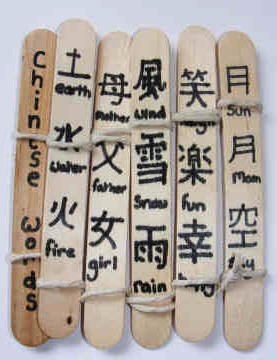 Chinese words
土
earth
水
water
火
fire
母
mother
父
father
女
girl
風
wind
雪
Snow
雨
rain
笑
楽
fun
幸
日
Sun
月
Moon
空